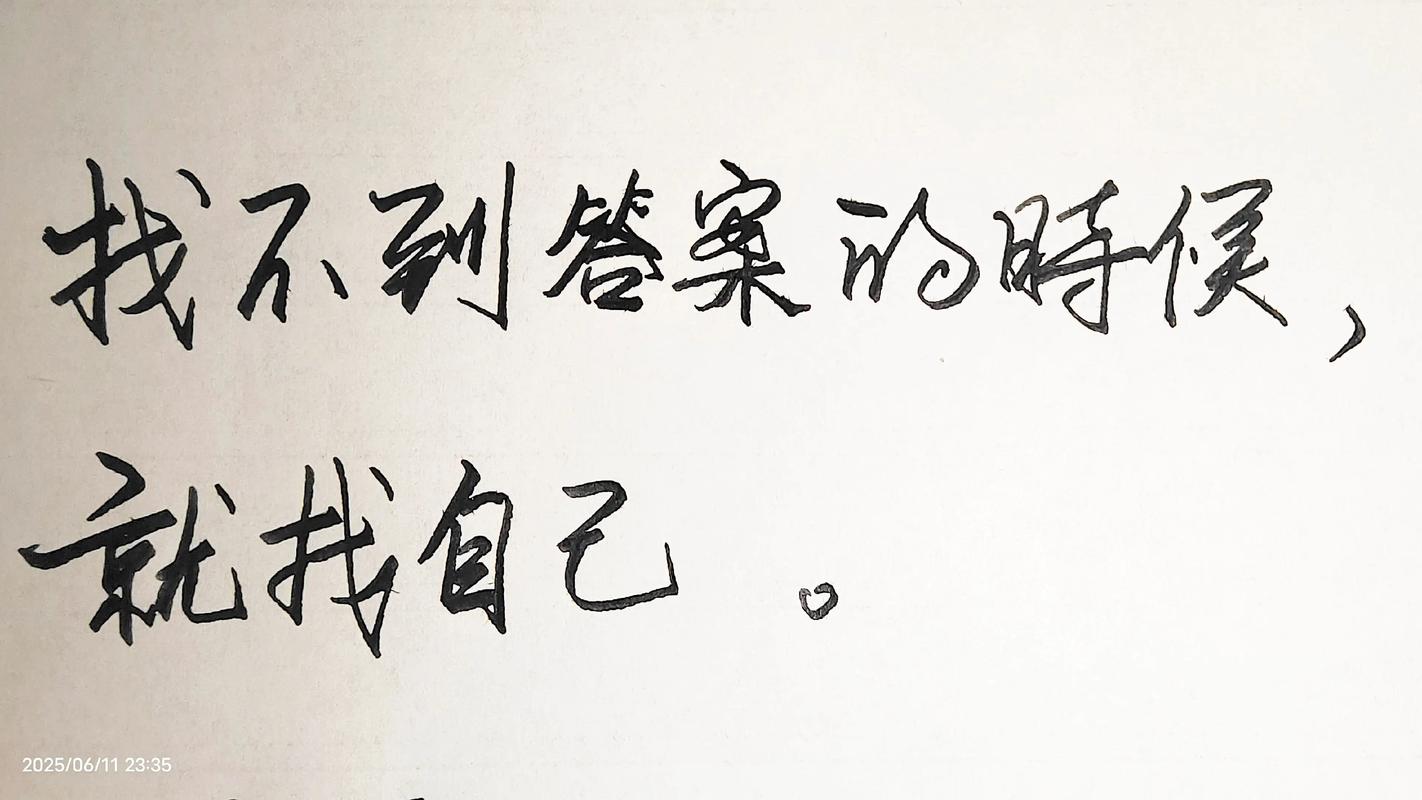 找不到答案的時候，
就找自己。
2025/06/11 23:35